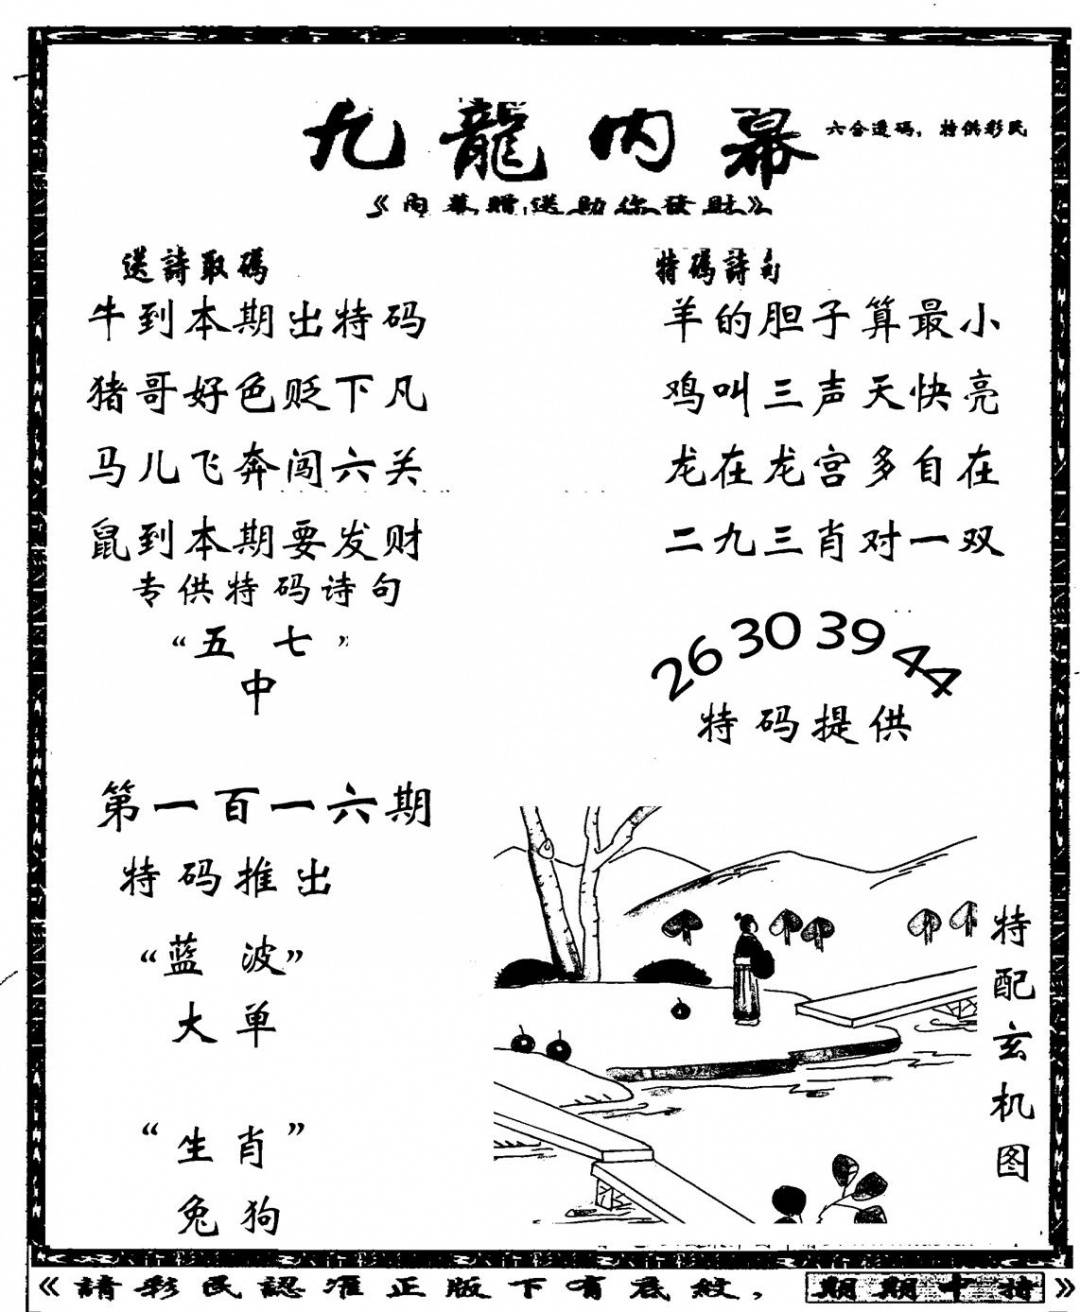 九龍内幕
六合透码，特供彩民
《内幕赠送助你發财》
送詩取碼
牛到本期出特码
猪哥好色贬下凡
马儿飞奔闯六关
鼠到本期要发财
专供特码诗句
“五七”
中
特碼詩句
羊的胆子算最小
鸡叫三声天快亮
龙在龙宫多自在
二九三肖对一双
26 30 39 44
特码提供
第一百一六期
特码推出
“蓝波”
大单
“生肖”
兔狗
特配玄机图
《請彩民認准正版下有底紋，期期中特》